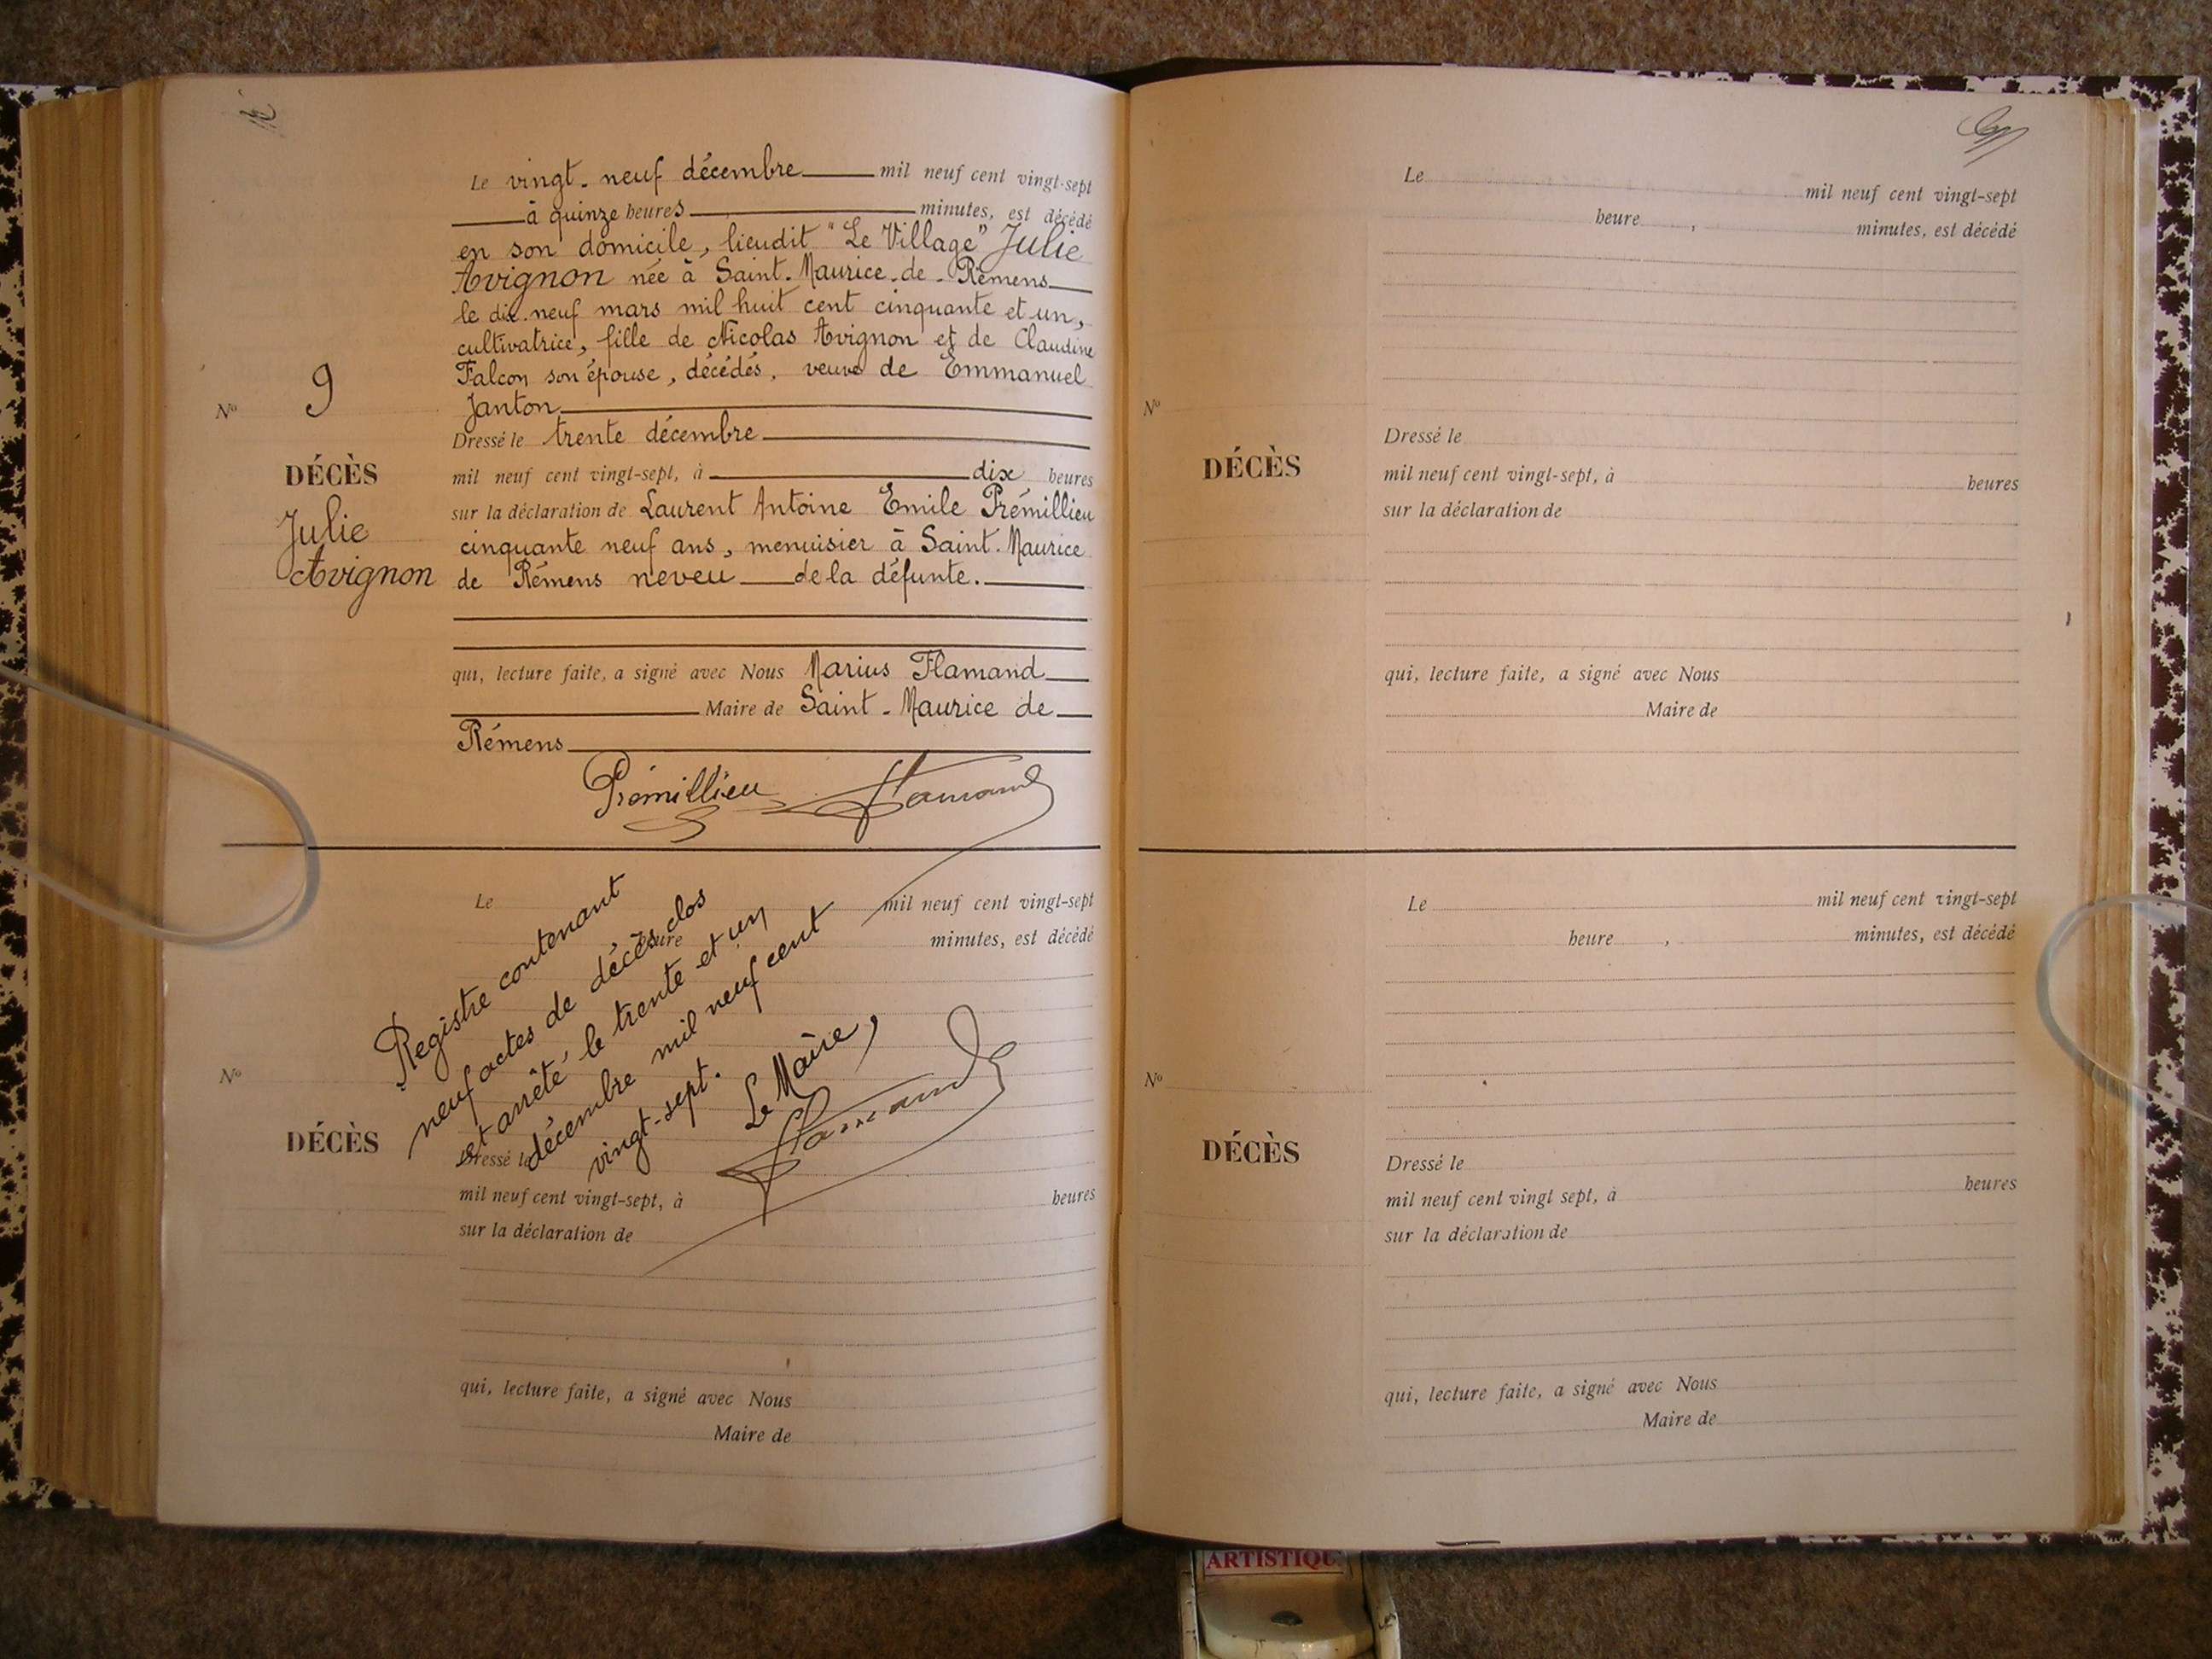 Le vingt-neuf décembre mil neuf cent vingt-sept
à quinze heures minutes, est décédé
en son domicile, lieudit "Le Village" Julie
Avignon née à Saint-Maurice-de-Rémens
le dix-neuf mars mil huit cent cinquante et un,
cultivatrice, fille de Nicolas Avignon et de Claudine
Falcon son épouse, décédés, veuve de Emmanuel
Janton
Nº 9
DÉCÈS
Julie
Avignon
Dressé le trente décembre
mil neuf cent vingt-sept, à dix heures
sur la déclaration de Laurent Antoine Emile Prémillieu
cinquante neuf ans, menuisier à Saint-Maurice
de Rémens neveu de la défunte.
qui, lecture faite, a signé avec Nous Marius Flamand
Maire de Saint-Maurice de
Rémens
Prémillieu Flamand
Le mil neuf cent vingt-sept
heure minutes, est décédé
Registre contenant
neuf actes de décès clos
et arrêté le trente et un
décembre mil neuf cent
vingt-sept.
Le Maire,
Flamand
Nº
DÉCÈS
Dressé le
mil neuf cent vingt-sept, à heures
sur la déclaration de
qui, lecture faite, a signé avec Nous
Maire de
Le mil neuf cent vingt-sept
heure , minutes, est décédé
Nº
DÉCÈS
Dressé le
mil neuf cent vingt-sept, à heures
sur la déclaration de
qui, lecture faite, a signé avec Nous
Maire de
Le mil neuf cent vingt-sept
heure , minutes, est décédé
Nº
DÉCÈS
Dressé le
mil neuf cent vingt sept, à heures
sur la déclaration de
qui, lecture faite, a signé avec Nous
Maire de
ARTISTIQU